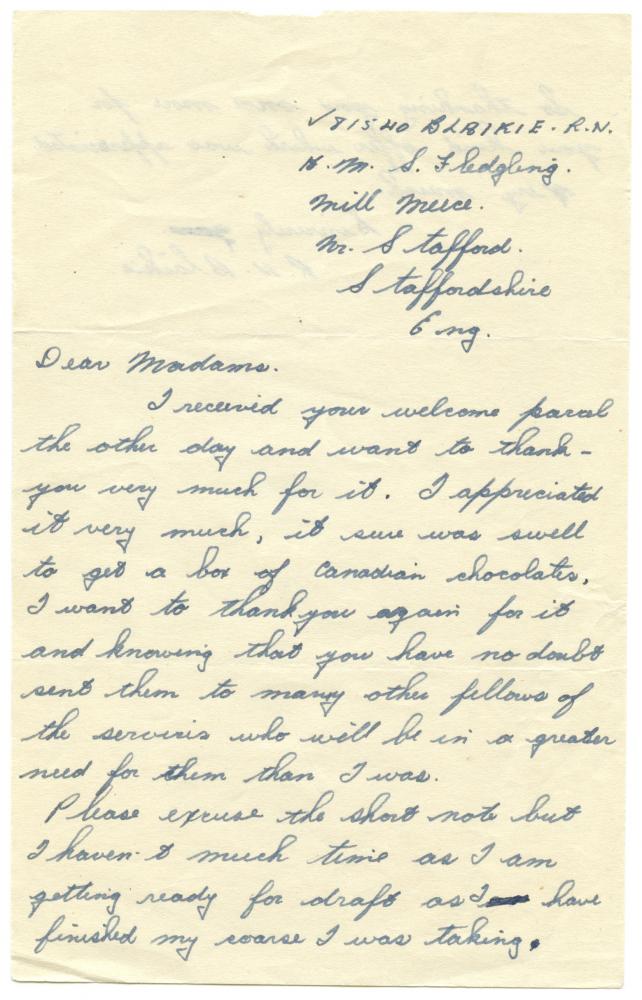 V81540 BLAIKIE. R.N.
H. M. S. Fledgling.
Mill Meece.
Nr. Stafford.
Staffordshire
Eng.
Dear Madams.
I received your welcome parcel
the other day and want to thank-
you very much for it. I appreciated
it very much, it sure was swell
to get a box of Canadian chocolates.
I want to thankyou again for it
and knowing that you have no doubt
sent them to many other fellows of
the services who will be in a greater
need for them than I was.
Please excuse the short note but
I haven-t much time as I am
getting ready for draft as I have
finished my coarse I was taking.